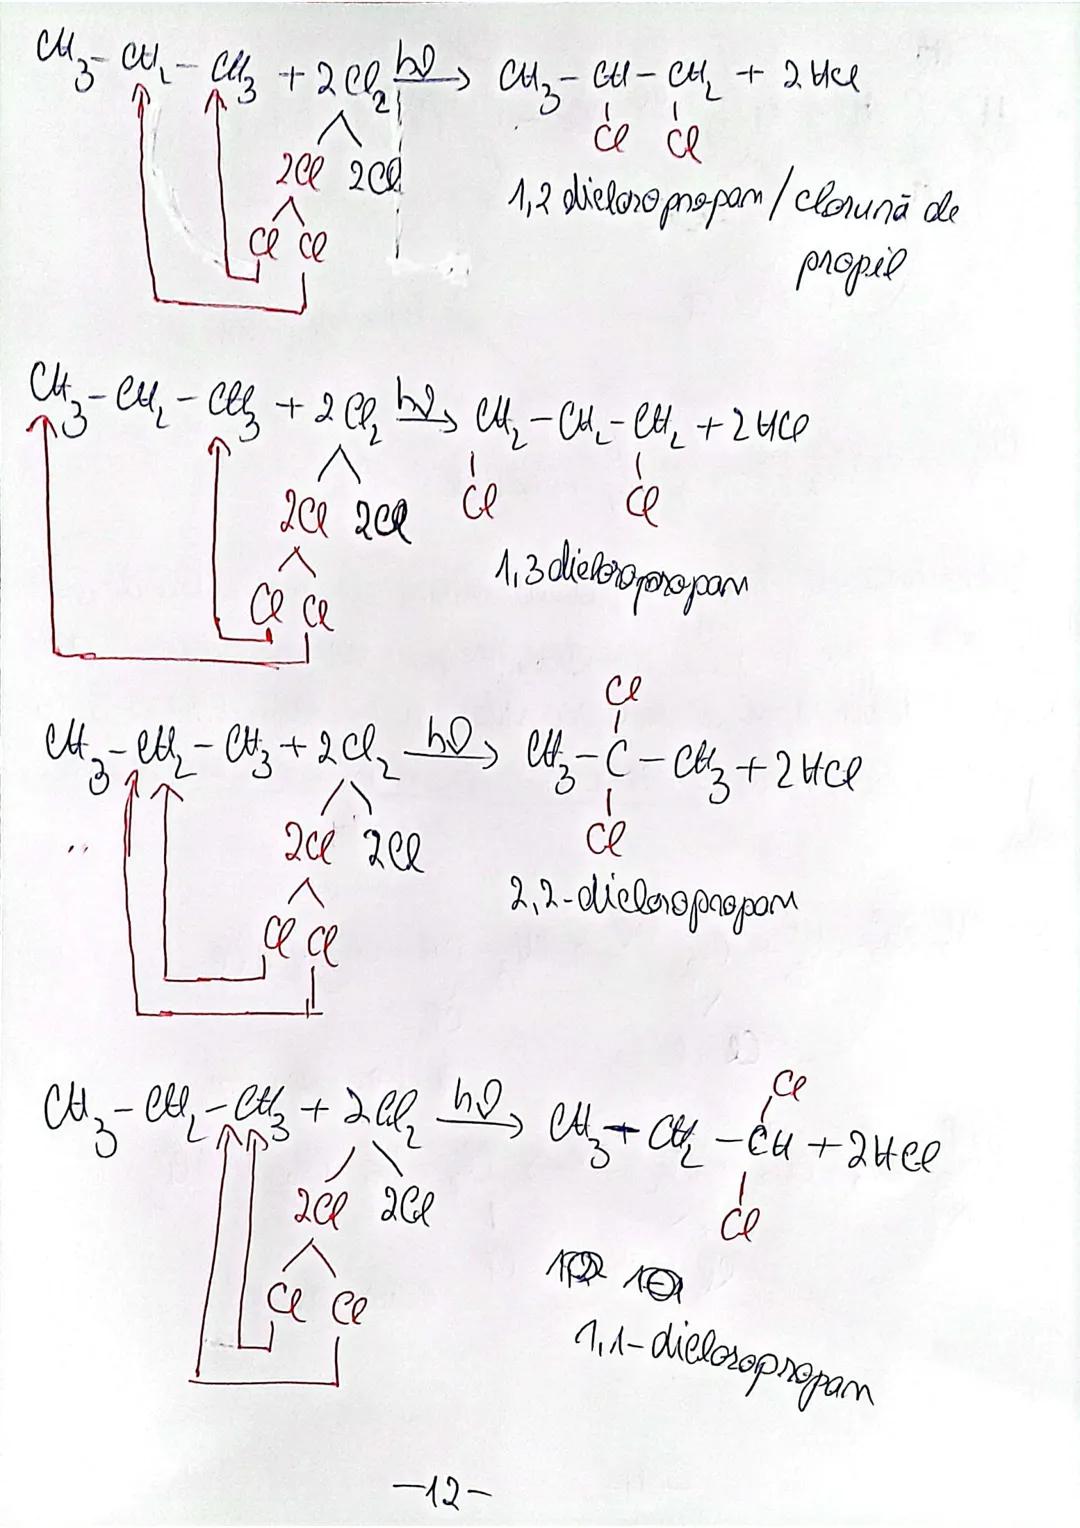 CH₃-CH₂-CH₃ + 2Cl₂ hν→ CH₃-CH-CH₂ + 2HCl
Cl Cl
2Cl 2Cl
Cl Cl
1,2 dicloropropan / clorură de
propil
CH₃-CH₂-CH₃ + 2Cl₂ hν→ CH₂-CH₂-CH₂ + 2HCl
Cl Cl
2Cl 2Cl
1,3 dicloropropan
Cl Cl
Cl
CH₃-CH₂-CH₃ + 2Cl₂ hν→ CH₃-C-CH₃ + 2HCl
Cl
2Cl 2Cl
2,2-dicloropropan
Cl Cl
Cl
CH₃-CH₂-CH₃ + 2Cl₂ hν→ CH₃-CH₂-CH + 2HCl
2Cl 2Cl
Cl
Cl Cl
1,1-dicloropropan
-12-